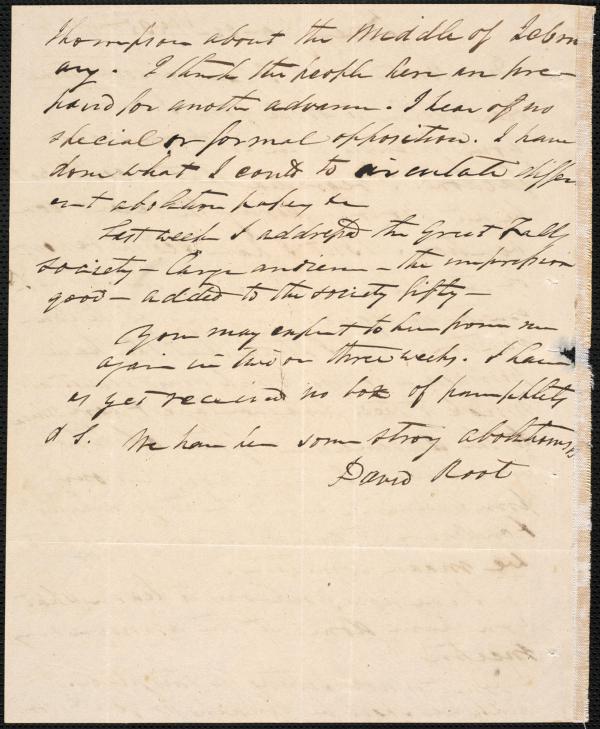 Thompson about the Middle of Febru
ary. I think the people here are pre-
paired for another advance. I hear of no
special or formal opposition. I have
done what I could to circulate differ
ent abolition papers &c
Last week I address'd the Great Falls
society - large audience - the impression
good - added to the society fifty -
You may expect to hear from me
again in two or three weeks. I have
as yet received no box of pamphlets
P S. We have here some strong abolitionists
David Root